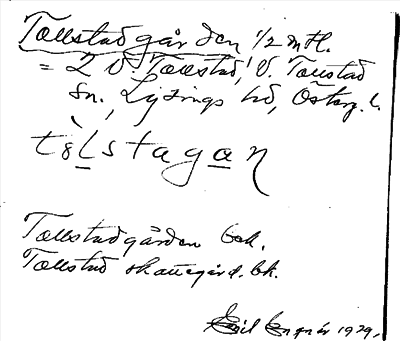 Tollstadgården 1/2 mtl.
= 2 V. Tollstad, V. Tollstad
sn., Lysings hd, Österg. l.
tòlstagan
Tollstadgården bok.
Tollstad skattegård. bk.
Emil 1929.